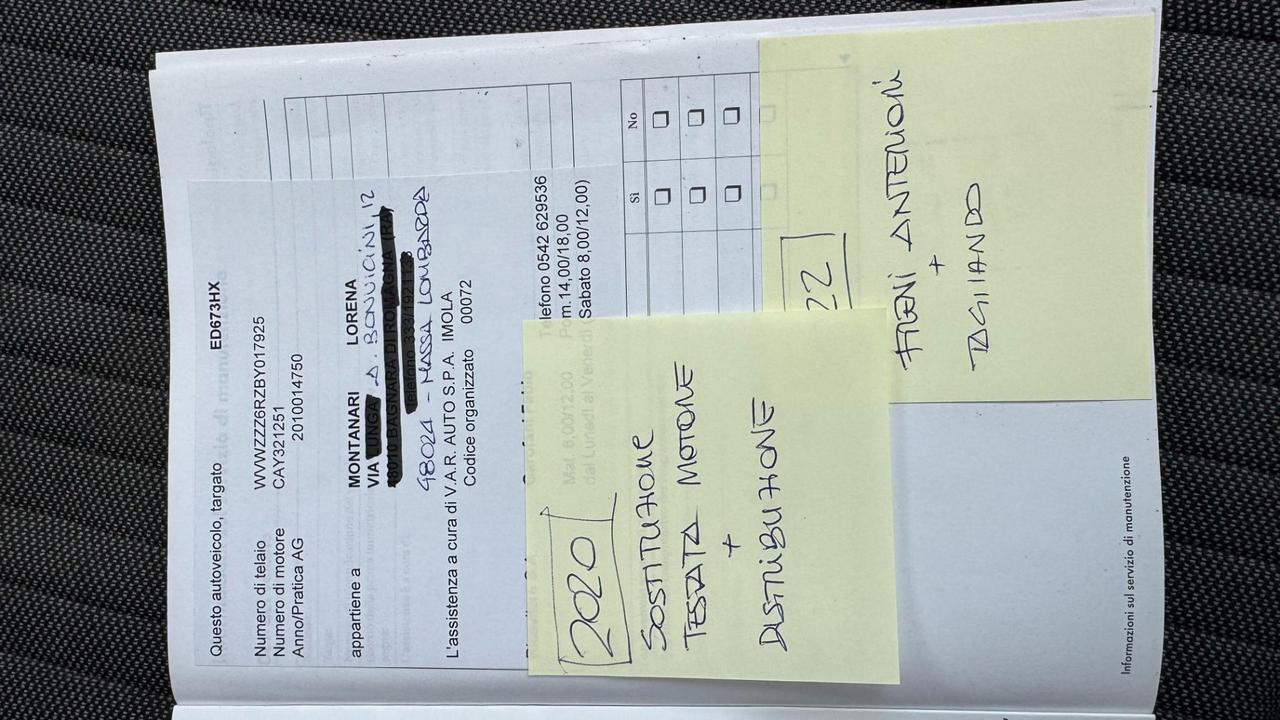 Questo autoveicolo, targato ED673HX
Numero di telaio WVWZZZ6RZBY017925
Numero di motore CAY321251
Anno/Pratica AG 2010014750
appartiene a MONTANARI LORENA
VIA LUNGA A. BONVICINI, 12
48010 BAGNARA DI ROMAGNA (RA)
Telefono
48024 - MASSA LOMBARDA
L'assistenza a cura di V.A.R. AUTO S.P.A. IMOLA
Codice organizzato 00072
Telefono 0542 629536
Mat. 8,00/12,00 Pom.14,00/18,00
dal Lunedì al Venerdì (Sabato 8,00/12,00)
Sì No
2020
SOSTITUZIONE
TESTATA MOTORE
+
DISTRIBUZIONE
22
FRENI ANTERIORI
+
TAGLIANDO
Informazioni sul servizio di manutenzione